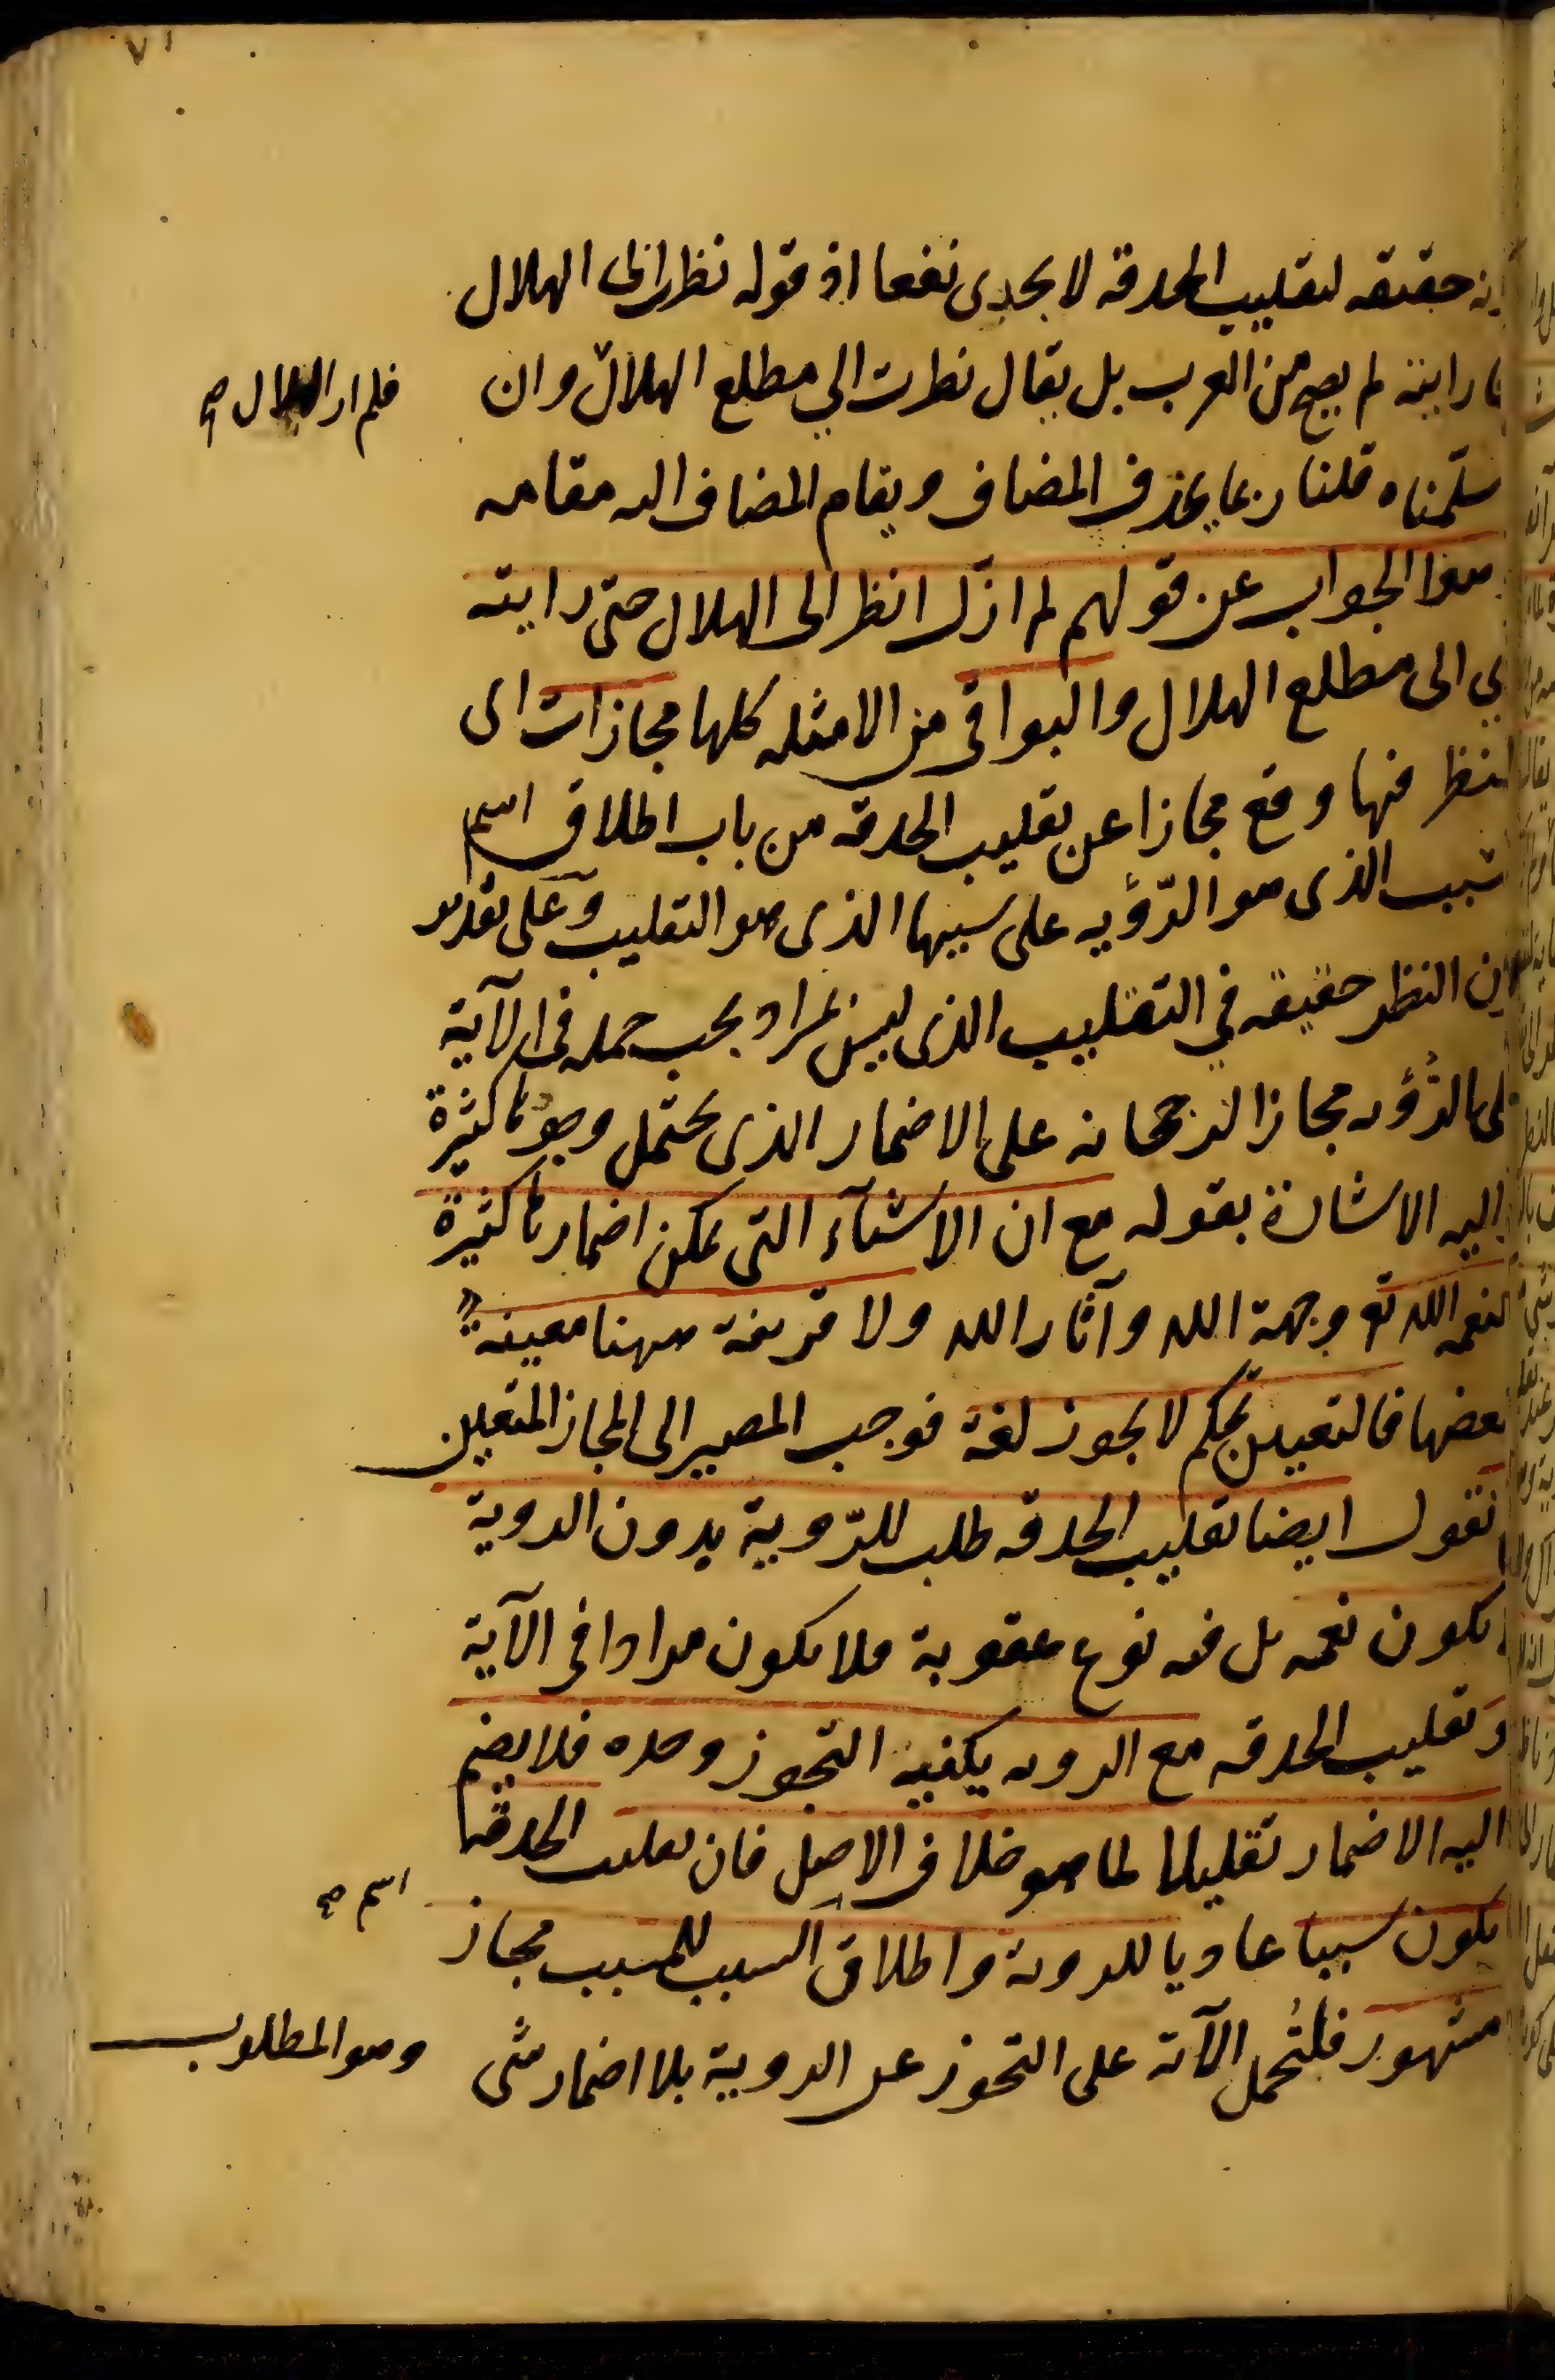 ٧١
حقيقه لتقليب الحدقه لا يجدى نفعا اذ قوله نظرت الى الهلال
فما راىته لم يصح من العرب بل يقال نظرت الي مطلع الهلال وان
فلم ار الهلال صح
سلّمناه قلنا ربما يحذف المضاف ويقام المضاف اليه مقامه
هو الجواب عن قولهم لم ازل انظر الى الهلال حتى رايته
اي الى مطلع الهلال والبواقى من الامثله كلها مجازات اى
النظر فيها وقع مجازا عن تقليب الحدقه من باب اطلاق اسم
المسبب الذى هو الرّؤيه على سببها الذى هو التقليب وعلى تقدير
كون النظر حقيقه في التقليب الذى ليس بمراد يجب حمله فى الآية
على الرُّؤيه مجازا لرجحانه على الاضمار الذى يحتمل وجوها كثيرة
اليه الاشارة بقوله مع ان الاشيآء التى يمكن اضمارها كثيرة
كنعمه الله تع وجهة الله وآثار الله ولا قرينة ههنا معينة
لبعضها فالتعيين تحكم لا يجوز لغة فوجب المصير الى المجاز المتعين
نقول ايضا تقليب الحدقه طلب للرّوية بدون الروية
لا يكون نعمه بل فيه نوع عقوبة فلا يكون مرادا فى الآية
وتقليب الحدقه مع الرويه يكفيه التجوز وحده فلا يضم
اليه الاضمار تقليلا لما هو خلاف الاصل فان تقليب الحدقة
يكون سببا عاديا للروية واطلاق السبب للمسبب مجاز
اسم صح
مشهور فلتُحمل الآية على التجوز عن الروية بلا اضمار شى
وهو المطلوب